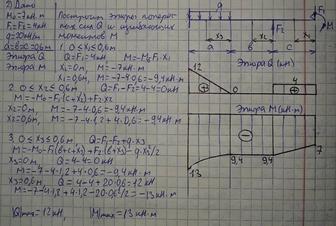 2) Дано
M₀=7кН·м
F₁=F₂=4кН
q=20кН/м
a=b=c=0,6м
Построить Эпюры попереч
ных сил Q и изгибающих
моментов M
1. 0≤x₁≤0,6м
Эпюра Q Q=F₁=4кН M=-M₀-F₁X₁
Эпюра M x₁=0м, M=-7кН·м
x₁=0,6м, M=-7-4·0,6=-9,4кН·м
2. 0≤x₂≤0,6м Q=F₁-F₂=4-4=0кН
M=-M₀-F₁(c+x₂)+F₂x₂
x₂=0м, M=-7-4·0,6=-9,4кН·м
x₂=0,6м, M=-7-4·1,2+4·0,6=-9,4кН·м
3. 0≤x₃≤0,6м Q=F₁-F₂+q·x₃
M=-M₀-F₁(b+c+x₃)+F₂(b+x₃)-q·x₃²/2
x₃=0м Q=4-4=0кН
M=-7-4·1,2+4·0,6=-9,4кН·м
x₃=0,6м Q=4-4+20·0,6=12кН
M=-7-4·1,8+4·1,2-20·0,6²/2=-13кН·м
Qmax=12кН, Mmax=13кН·м
q
F₂
F₁
M
x₃
x₂
x₁
a
b
c
Эпюра Q (кН)
12
+
4
+
Эпюра M (кН·м)
-
13
9,4
9,4
7